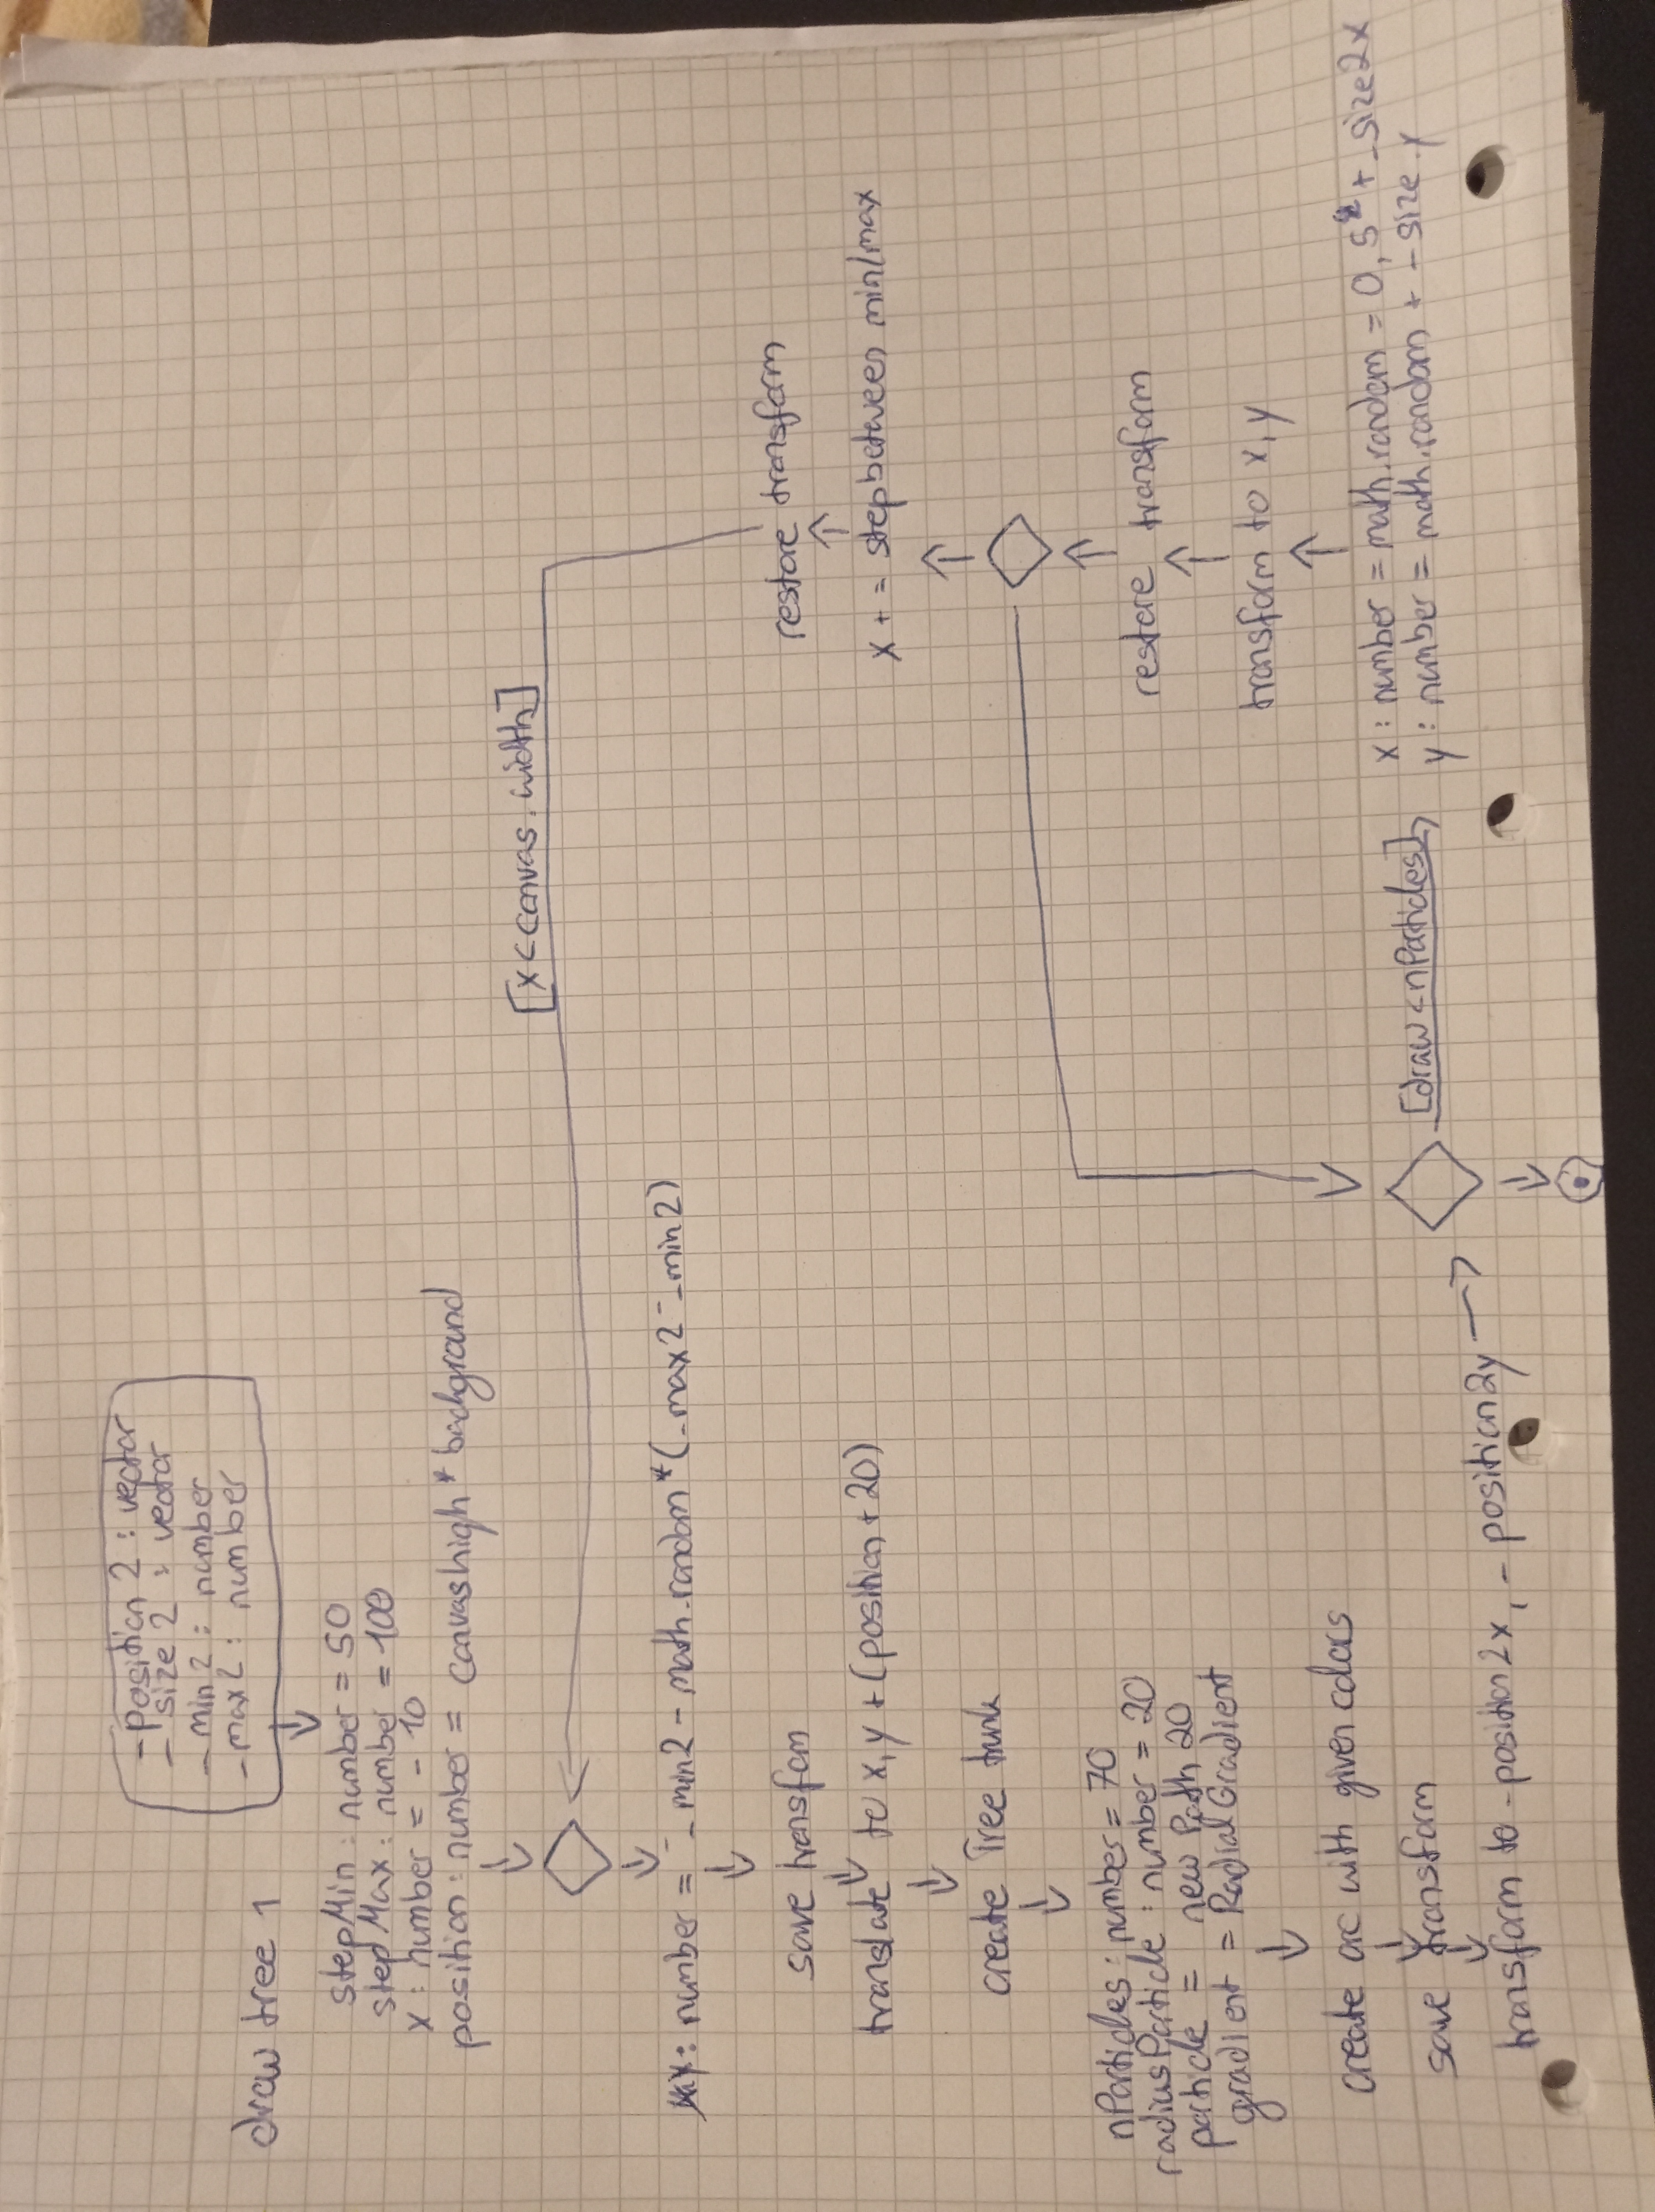 draw tree 1
- Position 2 : vector
- size 2 : vector
- min2 : number
- max2 : number
stepMin : number = 50
stepMax : number = 100
x : number = -10
position : number = canvashigh * background
[x < canvas.width]
y : number = _min2 - math.random * (_max2 - _min2)
save transfom
translate to x,y + (position + 20)
create Tree trunk
nParticles : number = 70
radiusParticle : number = 20
particle = new Path 20
gradient = RadialGradient
create arc with given colors
save transform
transform to -position2x, -position2y
[draw < nParticles]
x : number = math.random = 0,5 * + _size2x
y : number = math.random * - size.y
transform to x,y
restore transform
x += step between min/max
restore transform